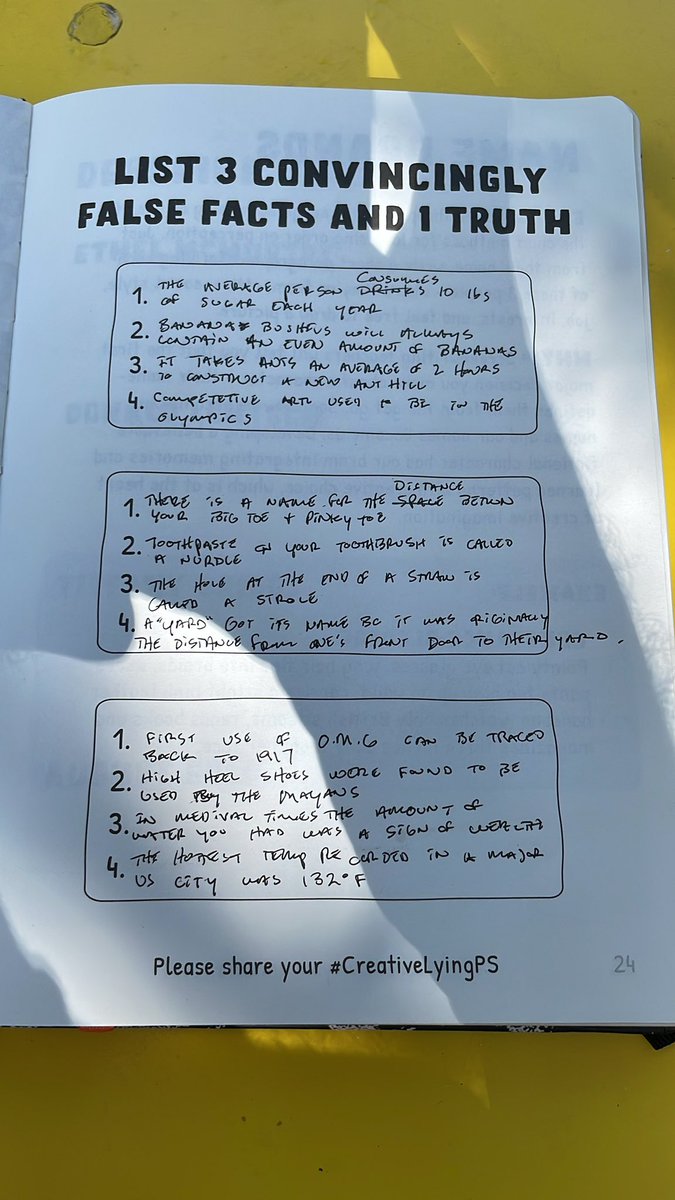 LIST 3 CONVINCINGLY
FALSE FACTS AND 1 TRUTH
CONSUMES
1. THE AVERAGE PERSON DRINKS 10 lbs
OF SUGAR EACH YEAR
2. BANANAS BUSHELS WILL ALWAYS
CONTAIN AN EVEN AMOUNT OF BANANAS
3. IT TAKES ANTS AN AVERAGE OF 2 HOURS
TO CONSTRUCT A NEW ANT HILL
4. COMPETETIVE ART USED TO BE IN THE
OLYMPICS
DISTANCE
1. THERE IS A NAME FOR THE SPACE BETWEEN
YOUR BIG TOE + PINKY TOE
2. TOOTHPASTE ON YOUR TOOTHBRUSH IS CALLED
A NURDLE
3. THE HOLE AT THE END OF A STRAW IS
CALLED A STROLE
4. A "YARD" GOT ITS NAME BC IT WAS ORIGINALLY
THE DISTANCE FROM ONE'S FRONT DOOR TO THEIR YARD.
1. FIRST USE OF O.M.G CAN BE TRACED
BACK TO 1917
2. HIGH HEEL SHOES WERE FOUND TO BE
USED BY THE MAYANS
3. IN MEDIVAL TIMES THE AMOUNT OF
WATER YOU HAD WAS A SIGN OF WEALTH
4. THE HOTTEST TEMP RECORDED IN A MAJOR
US CITY WAS 132°F
Please share your #CreativeLyingPS
24